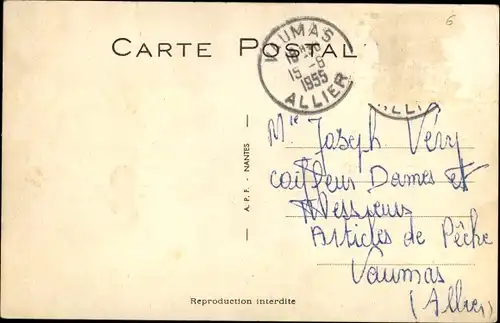 6
CARTE POSTALE
VAUMAS
15-6
1955
ALLIER
ALLI
Mr Joseph Véry
coiffeur Dames et
Messieurs
Articles de Pêche
Vaumas
(Allier)
A. P. F. - NANTES
Reproduction interdite